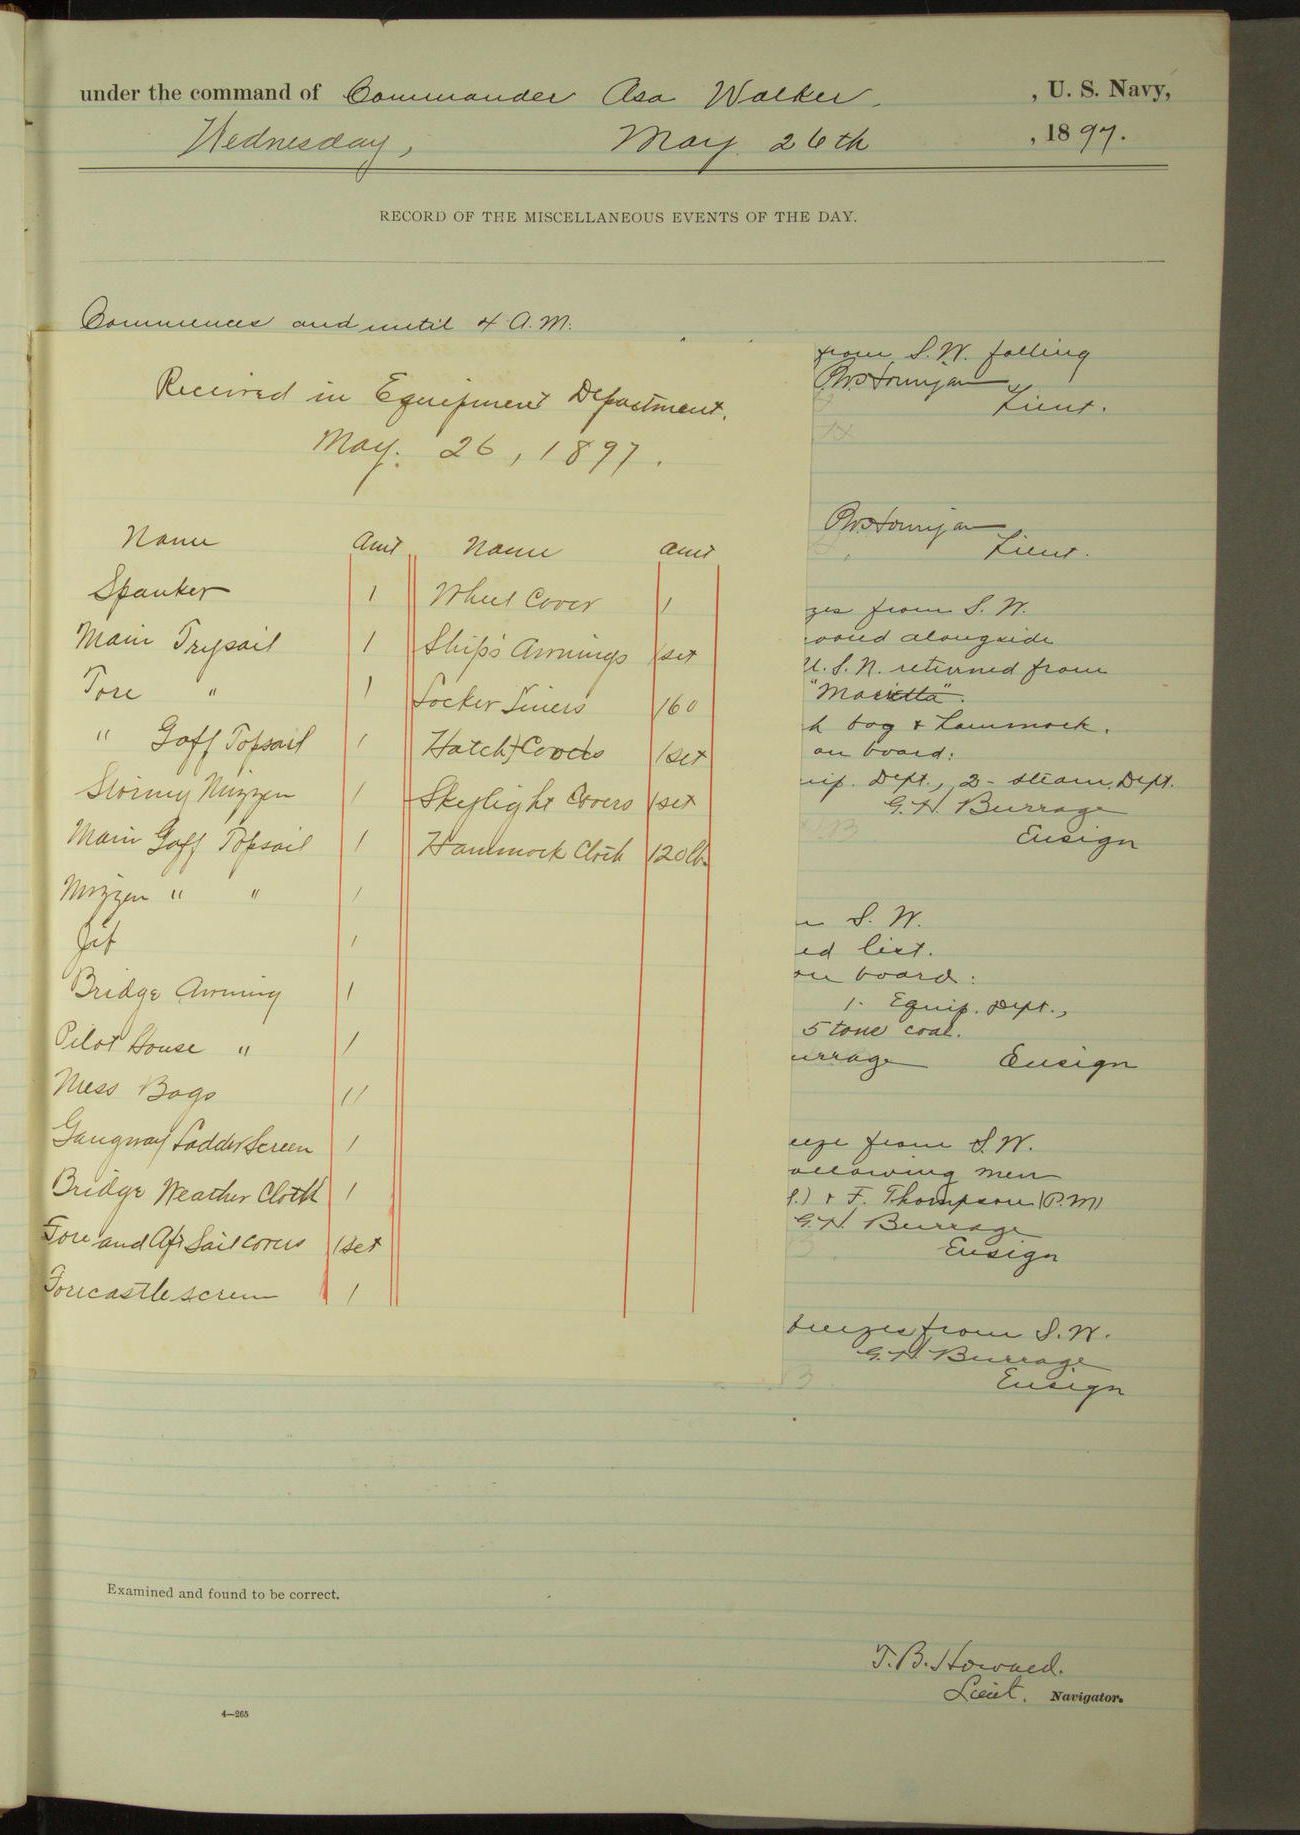 under the command of Commander Asa Walker, , U. S. Navy,
Wednesday, May 26th , 1897.
RECORD OF THE MISCELLANEOUS EVENTS OF THE DAY.
Commences and until 4 A.M.
Received in Equipment Department.
May. 26, 1897.
Name Amt Name Amt
Spanker 1 Wheel Cover 1
Main Trysail 1 Ship's Awnings 1 set
Fore " 1 Locker Liners 160
" Gaff Topsail 1 Hatch Covers 1 set
Stormy Mizzen 1 Skylight Covers 1 set
Main Gaff Topsail 1 Hammock Cloth 120 lbs
Mizzen " " 1
Jib 1
Bridge Awning 1
Pilot House " 1
Mess Bags 11
Gangway Ladder Screen 1
Bridge Weather Cloth 1
Fore and Aft Sail covers 1 set
Forecastle screen 1
from S.W. falling
Lieut.
Lieut.
from S.W.
alongside
U.S.N. returned from
"Marietta".
bag & hammock.
on board:
Dept., 2- steam Dept.
G.H. Burrage
Ensign
S.W.
list.
on board:
1- Equip. Dept.,
5 tons coal.
Ensign
from S.W.
men
& F. Thompson (P.M)
G.H. Burrage
Ensign
from S.W.
G.H. Burrage
Ensign
Examined and found to be correct.
T.B. Howard.
Lieut. Navigator.
4—265